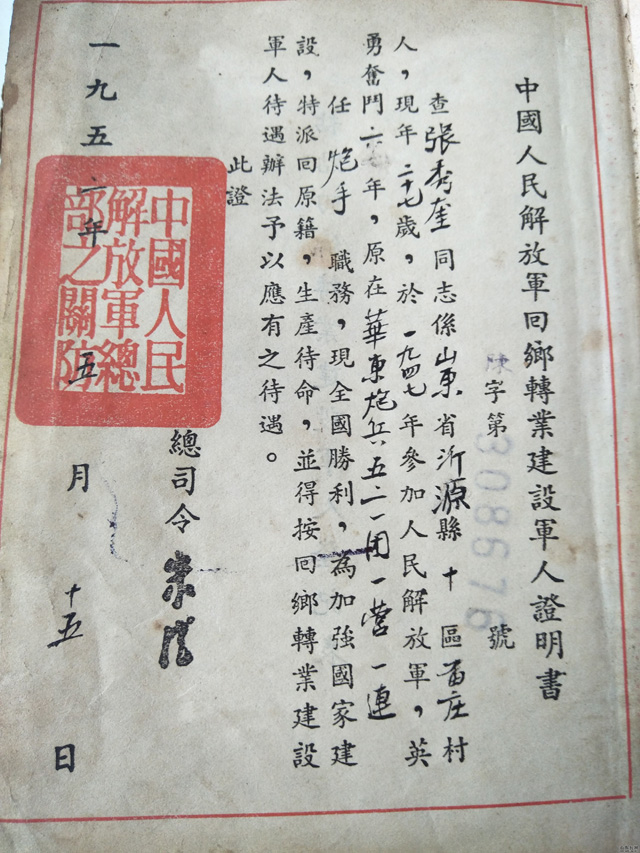 中國人民解放軍回鄉轉業建設軍人證明書
陳字第308676號
查張秀奎同志係山東省沂源縣十區苗庄村
人，現年二十七歲，於一九四七年參加人民解放軍，英
勇奮鬥六年，原在華東炮兵五二一团一營一連
任炮手職務，現全國勝利，為加強國家建
設，特派回原籍，生產待命，並得按回鄉轉業建設
軍人待遇辦法予以應有之待遇。
此證
總司令朱德
一九五二年五月十五日
中國人民
解放軍總
部之關防